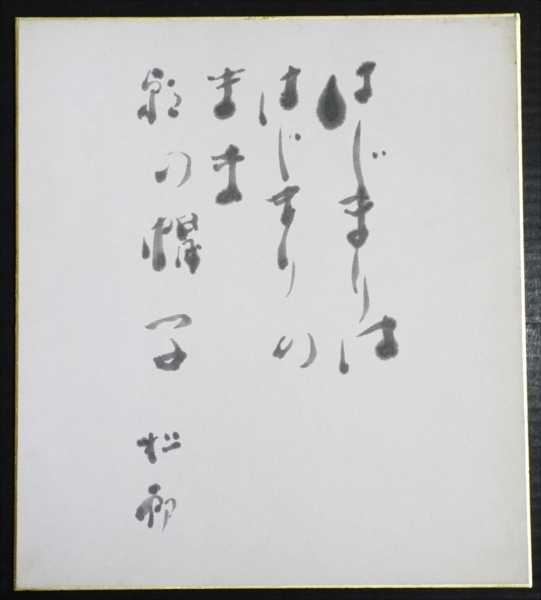 はじまりは
はじまりの
まま
の帽子